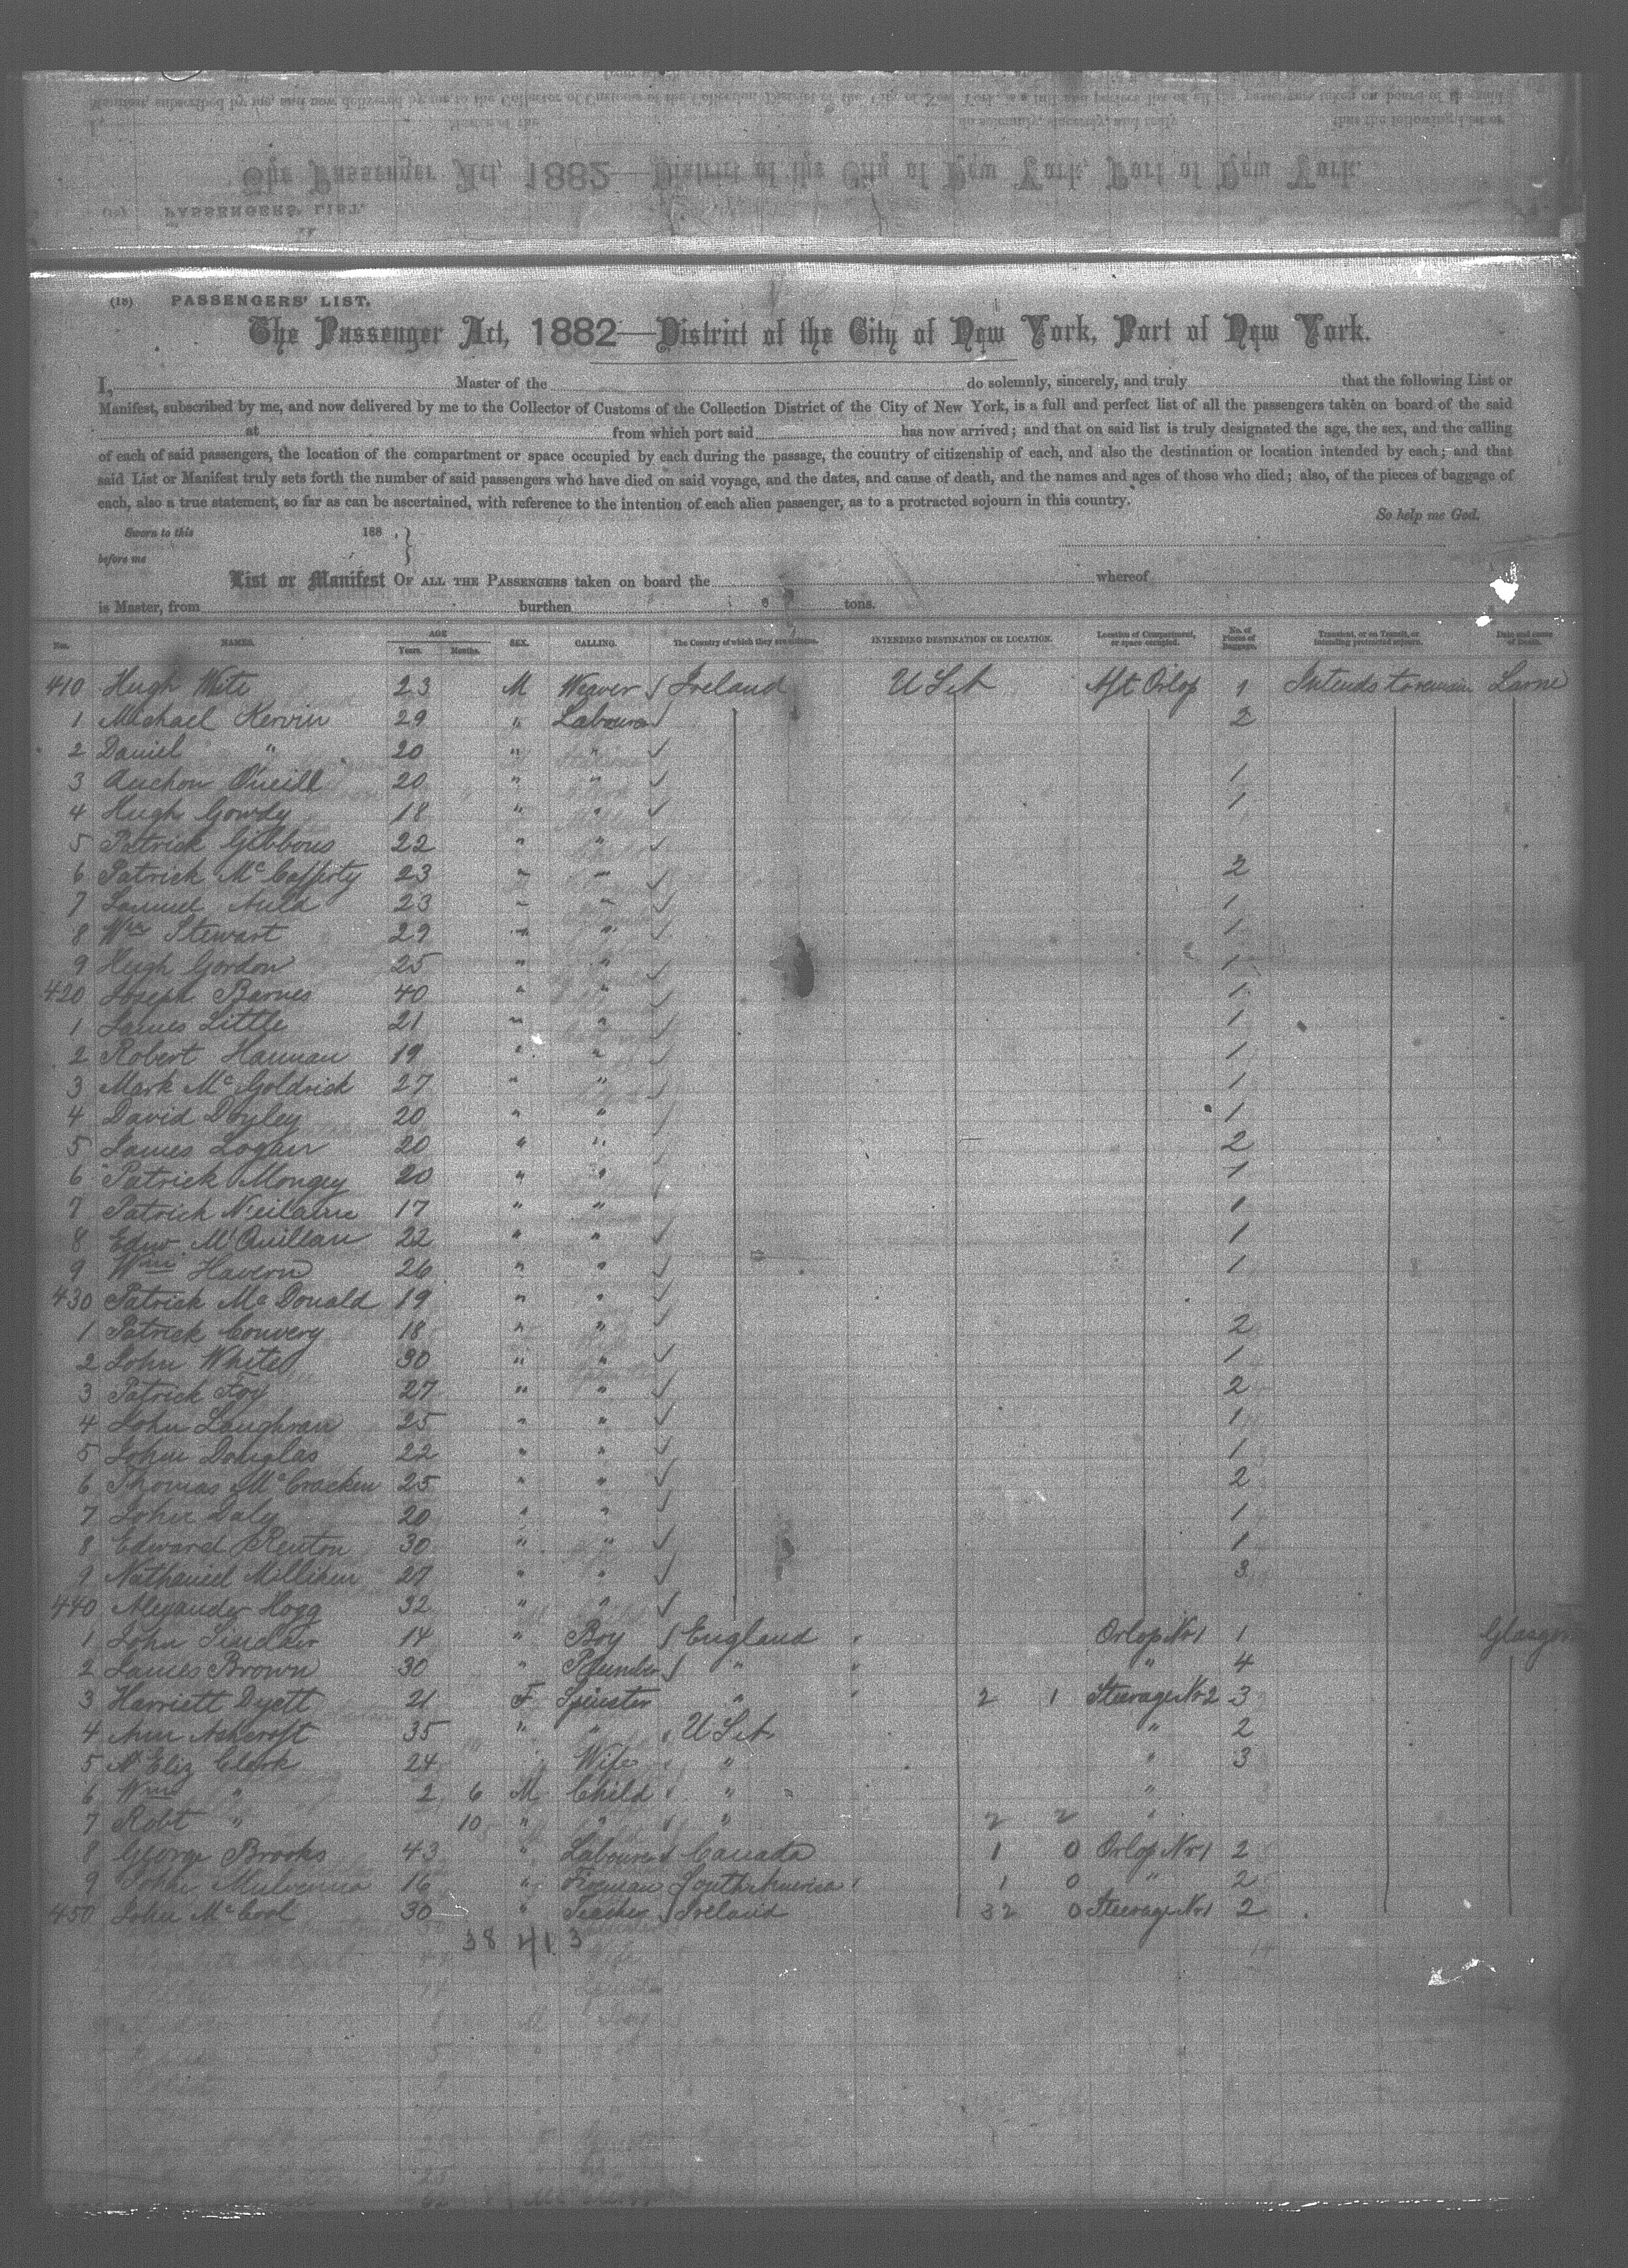 (18) PASSENGERS' LIST.
The Passenger Act, 1882—District of the City of New York, Port of New York.
I, Master of the do solemnly, sincerely, and truly that the following List or
Manifest, subscribed by me, and now delivered by me to the Collector of Customs of the Collection District of the City of New York, is a full and perfect list of all the passengers taken on board of the said
at from which port said has now arrived; and that on said list is truly designated the age, the sex, and the calling
of each of said passengers, the location of the compartment or space occupied by each during the passage, the country of citizenship of each, and also the destination or location intended by each; and that
said List or Manifest truly sets forth the number of said passengers who have died on said voyage, and the dates, and cause of death, and the names and ages of those who died; also, of the pieces of baggage of
each, also a true statement, so far as can be ascertained, with reference to the intention of each alien passenger, as to a protracted sojourn in this country.
So help me God.
Sworn to this 188 ,
before me
List or Manifest OF ALL THE PASSENGERS taken on board the whereof
is Master, from burthen tons.
Nos. NAMES. AGE Years. Months. SEX. CALLING. The Country of which they are citizens. INTENDING DESTINATION OR LOCATION. Location of Compartment, or space occupied. No. of Pieces of Baggage. Transient, or on Transit, or intending protracted sojourn. Date and cause of Death.
410 Hugh Wite 23 M Weaver Ireland USA Aft Orlop 1 Intends to remain Larne
1 Michael Kervin 29 " Labourer 2
2 Daniel " 20 " "
3 O'neill 20 " " 1
4 Hugh Gowdy 18 " " 1
5 Patrick Gibbons 22 " "
6 Patrick McCafferty 23 " " 2
7 Samuel Auld 23 " " 1
8 Wm Stewart 29 " " 1
9 Hugh Gordon 25 " " 1
420 Joseph Barnes 40 " " 1
1 James Little 21 " " 1
2 Robert Hannan 19 " " 1
3 Mark McGoldrick 27 " " 1
4 David Doyley 20 " " 1
5 James Logan 20 " " 2
6 Patrick Mongey 20 " " 1
7 Patrick 17 " " 1
8 Edw. McQuillan 22 " " 1
9 Wm Havern 26 " " 1
430 Patrick McDonald 19 " "
1 Patrick Convery 18 " " 2
2 John White 30 " " 1
3 Patrick Foy 27 " " 2
4 John Laughran 25 " " 1
5 John Douglas 22 " " 1
6 Thomas McCracken 25 " " 2
7 John Daly 20 " " 1
8 Edward Renton 30 " " 1
9 Nathaniel Milliken 27 " " 3
440 Alexander Hogg 32 " "
1 John Sinclair 14 " Boy England Orlop No1 1 Glasgow
2 James Brown 30 " Plumber " " 4
3 Harriett Dyett 21 F Spinster " 2 1 Steerage No2 3
4 Ann Ashcroft 35 " " USA " 2
5 Eliz Clark 24 " Wife " " 3
6 Wm " 2 6 M Child " "
7 Robt " 10 " " " 2 2 "
8 George Brooks 43 " Labourer Canada 1 0 Orlop No1 2
9 John Mulvenna 16 " Fireman South America 1 0 " 2
450 John McCool 30 " Teacher Ireland 32 0 Steerage No1 2
38 41 3